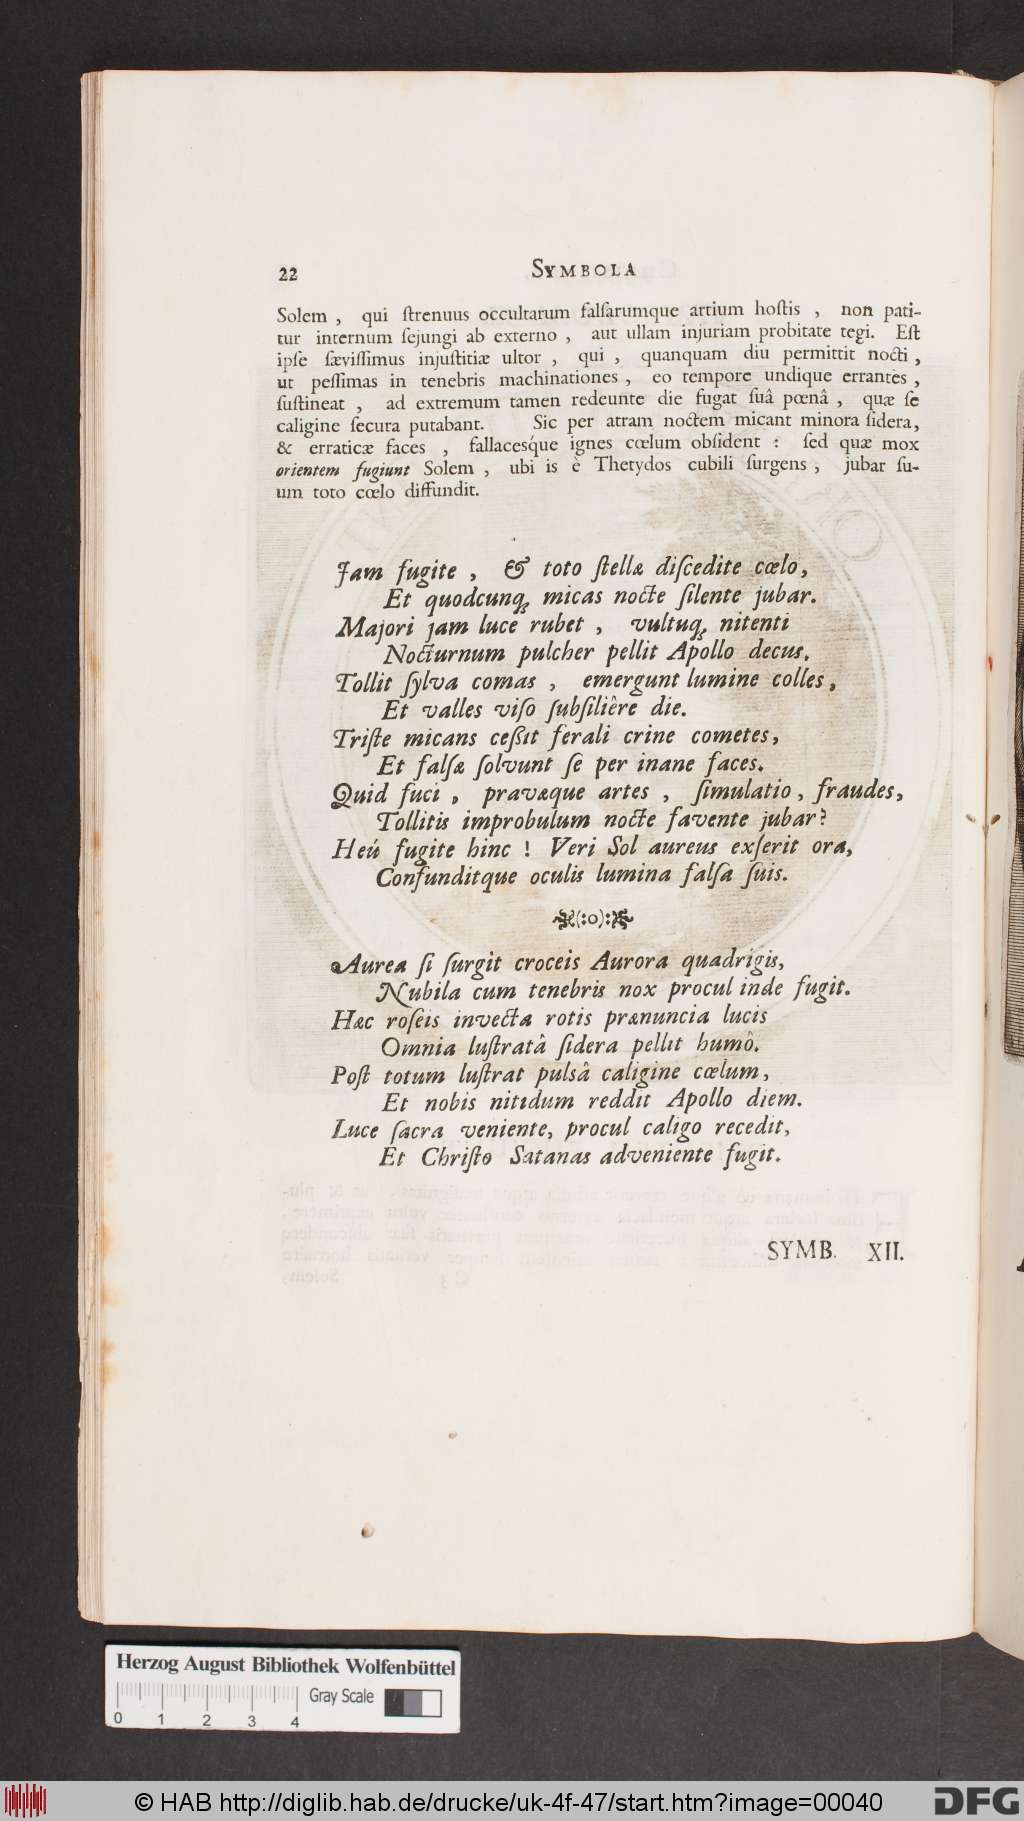 22 SYMBOLA
Solem , qui ſtrenuus occultarum falſarumque artium hoſtis , non pati-
tur internum ſejungi ab externo , aut ullam injuriam probitate tegi. Eſt
ipſe ſæviſſimus injuſtitiæ ultor , qui , quanquam diu permittit nocti ,
ut peſſimas in tenebris machinationes , eo tempore undique errantes ,
ſuſtineat , ad extremum tamen redeunte die fugat ſuâ pœnâ , quæ ſe
caligine ſecura putabant. Sic per atram noctem micant minora ſidera,
& erraticæ faces , fallacesq́ue ignes cœlum obſident : ſed quæ mox
orientem fugiunt Solem , ubi is è Thetydos cubili ſurgens , jubar ſu-
um toto cœlo diffundit.
Jam fugite , & toto ſtellæ diſcedite cœlo,
Et quodcunq; micas nocte ſilente jubar.
Majori jam luce rubet , vultuq; nitenti
Nocturnum pulcher pellit Apollo decus.
Tollit ſylva comas , emergunt lumine colles,
Et valles viſo ſubſiliêre die.
Triſte micans ceßit ferali crine cometes,
Et falſæ ſolvunt ſe per inane faces.
Quid fuci , pravæque artes , ſimulatio, fraudes,
Tollitis improbulum nocte favente jubar?
Heú fugite hinc ! Veri Sol aureus exſerit ora,
Confunditque oculis lumina falſa ſuis.
(:o):
Aurea ſi ſurgit croceis Aurora quadrigis,
Nubila cum tenebris nox procul inde fugit.
Hæc roſeis invecta rotis prænuncia lucis
Omnia luſtratâ ſidera pellit humô.
Poſt totum luſtrat pulsâ caligine cœlum,
Et nobis nitidum reddit Apollo diem.
Luce ſacra veniente, procul caligo recedit,
Et Chriſto Satanas adveniente fugit.
SYMB. XII.
Herzog August Bibliothek Wolfenbüttel
Gray Scale
0 1 2 3 4
© HAB http://diglib.hab.de/drucke/uk-4f-47/start.htm?image=00040
DFG